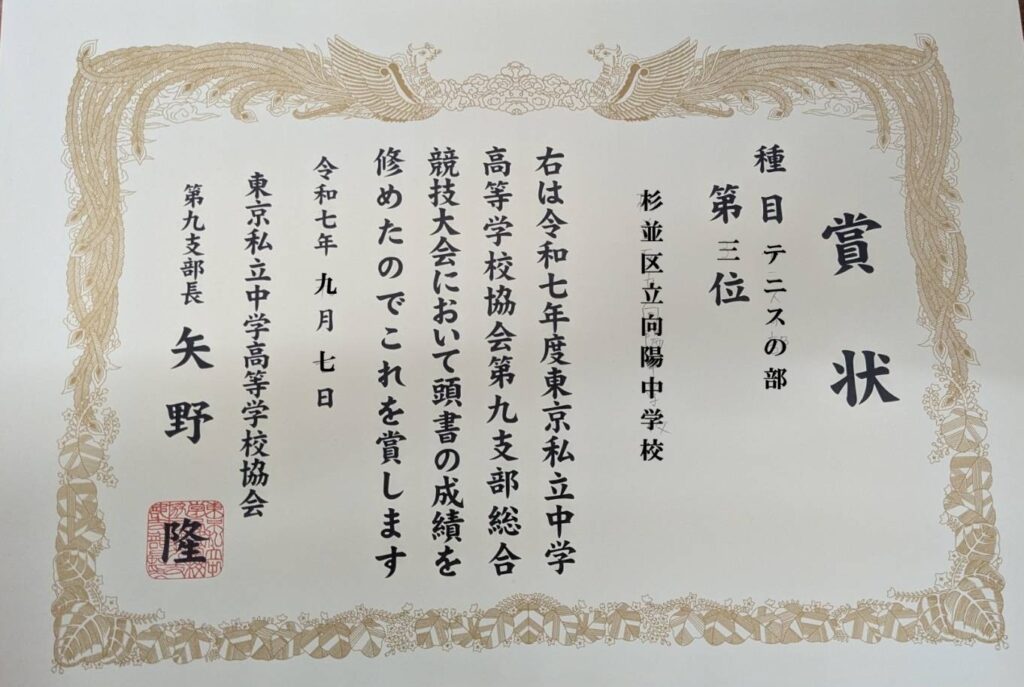 賞状
種目 テニスの部
第三位
杉並区立向陽中学校
右は令和七年度東京私立中学
高等学校協会第九支部総合
競技大会において頭書の成績を
修めたのでこれを賞します
令和七年 九月 七日
東京私立中学高等学校協会
第九支部長 矢野 隆